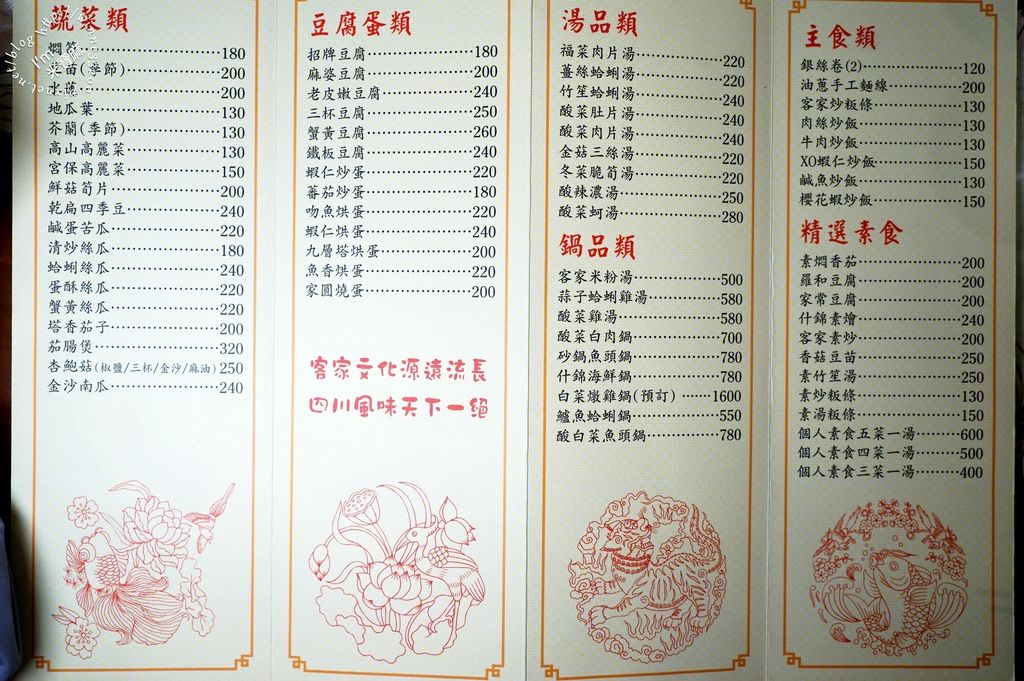 蔬菜類
燜筍 180
豆苗(季節) 200
水蓮 200
地瓜葉 130
芥蘭(季節) 130
高山高麗菜 130
宮保高麗菜 150
鮮菇筍片 200
乾扁四季豆 240
鹹蛋苦瓜 220
清炒絲瓜 180
蛤蜊絲瓜 240
蛋酥絲瓜 220
蟹黃絲瓜 220
塔香茄子 200
茄腸煲 320
杏鮑菇(椒鹽/三杯/金沙/麻油) 250
金沙南瓜 240
豆腐蛋類
招牌豆腐 180
麻婆豆腐 200
老皮嫩豆腐 240
三杯豆腐 250
蟹黃豆腐 260
鐵板豆腐 240
蝦仁炒蛋 220
蕃茄炒蛋 180
吻魚烘蛋 220
蝦仁烘蛋 240
九層塔烘蛋 200
魚香烘蛋 220
家圓燒蛋 200
客家文化源遠流長
四川風味天下一絕
湯品類
福菜肉片湯 220
薑絲蛤蜊湯 220
竹笙蛤蜊湯 240
酸菜肚片湯 240
酸菜肉片湯 240
金菇三絲湯 220
冬菜脆筍湯 220
酸辣濃湯 250
酸菜蚵湯 280
鍋品類
客家米粉湯 500
蒜子蛤蜊雞湯 580
酸菜雞湯 580
酸菜白肉鍋 700
砂鍋魚頭鍋 780
什錦海鮮鍋 780
白菜燉雞鍋(預訂) 1600
鱸魚蛤蜊鍋 550
酸白菜魚頭鍋 780
主食類
銀絲卷(2) 120
油蔥手工麵線 200
客家炒粄條 130
肉絲炒飯 130
牛肉炒飯 130
XO蝦仁炒飯 150
鹹魚炒飯 130
櫻花蝦炒飯 150
精選素食
素燜香茄 200
羅和豆腐 200
家常豆腐 200
什錦素燴 240
客家素炒 200
香菇豆苗 250
素竹笙湯 250
素炒粄條 130
素湯粄條 150
個人素食五菜一湯 600
個人素食四菜一湯 500
個人素食三菜一湯 400